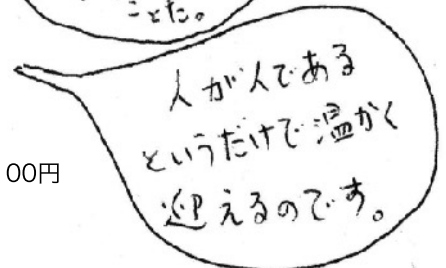 ことだ。
人が人である
というだけで温かく
迎えるのです。
00円